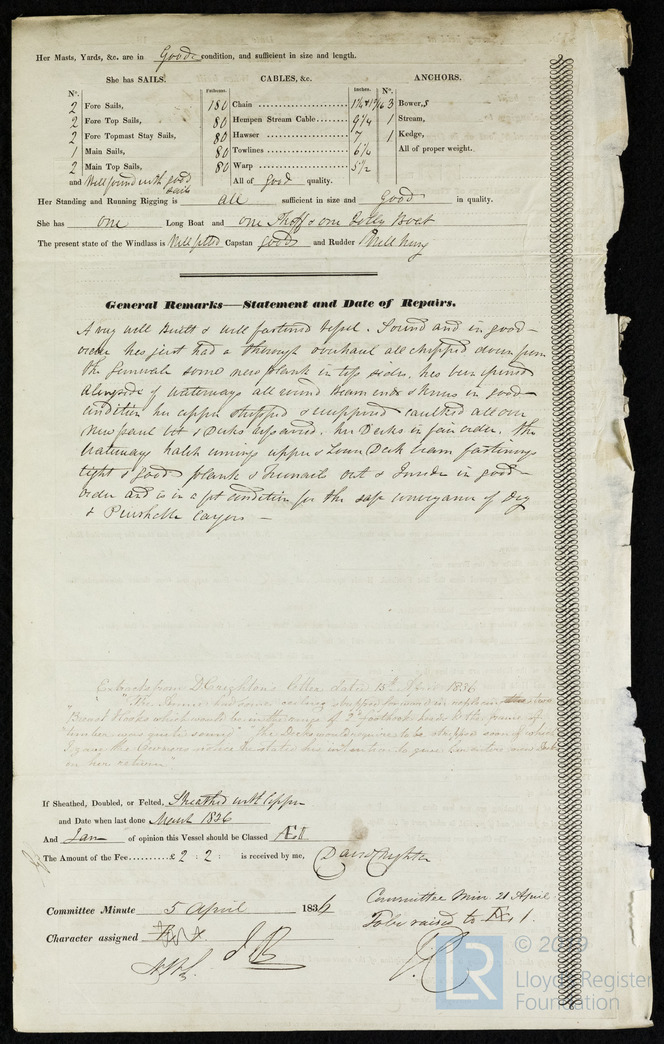 Her Masts, Yards, &c. are in Good condition, and sufficient in size and length.
She has SAILS. CABLES, &c. ANCHORS.
No. Fathoms. Inches. No.
2 Fore Sails, 180 Chain 3 Bowers
2 Fore Top Sails, 80 Hempen Stream Cable 9 1/4 1 Stream,
2 Fore Topmast Stay Sails, 80 Hawser 7 1 Kedge,
1 Main Sails, 80 Towlines 6 1/4 All of proper weight.
2 Main Top Sails, 80 Warp 5 1/2
and Well found with good sails All of good quality.
Her Standing and Running Rigging is all sufficient in size and Good in quality.
She has one Long Boat and one Skiff & one Jolly Boat
The present state of the Windlass is Well fitted Capstan Good and Rudder Well hung
General Remarks—Statement and Date of Repairs.
A very well Built & well fastened Vessel. Sound and in good
order has just had a thorough overhaul all stripped down from
the Gunwale some new plank in top sides, has been opened
alongside of waterways all round Beam ends & Knees in good
condition her upper stripped & caulked all over
New & Decks her Decks in fair order. The
Waterway hatch comings upper & Lower Deck beam fastenings
tight & good plank & Treenails out & Inside in good
order and is in a fit condition for the safe conveyance of Dry
& Perishable Cargos —
Extracts from D Creighton's letter dated 15th April 1836
"The had some ceiling stripped forward in
Breast Hooks which would be in the range of 2d foothook heads & the frame of
timber was quite sound" "The Decks would require to be stripped soon of which
I gave the Owners notice he states his intention to give her entire new Decks
on her return"
If Sheathed, Doubled, or Felted, Sheathed with Copper
and Date when last done March 1836
And I am of opinion this Vessel should be Classed Æ 1
The Amount of the Fee £ 2 : 2 : is received by me,
David Creighton
Committee Minute 5 April 1836
Character assigned
Committee Min 21 April
To be raised to Æ 1.
© 2019
LR
Lloyd's Register
Foundation